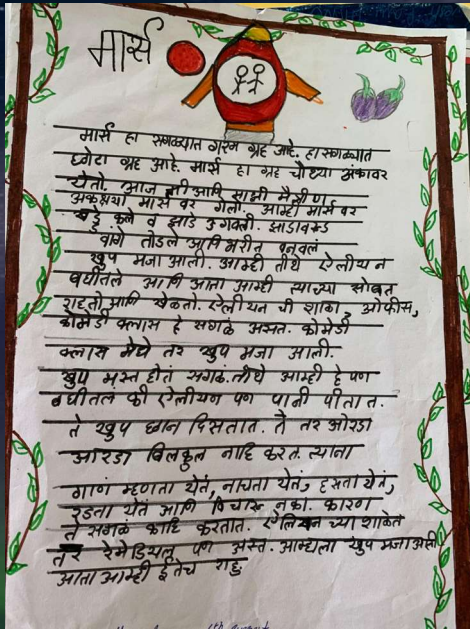 मार्स
मार्स हा सगळ्यात गरम ग्रह आहे. हा सगळ्यात
छोटा ग्रह आहे. मार्स हा ग्रह चौथ्या अंकावर
येतो. आज मी आणि माझी मैत्रीण
मार्स वर गेलो. आम्ही मार्स वर
खड्डे केले व झाडे उगवली. झाडावरून
वांगे तोडले आणि भरीत बनवलं
खुप मजा आली. आम्ही तीथे ऐलीयन
बघीतले आणि आता आम्ही त्याच्या सोबत
राहतो आणि खेळतो. ऐलीयन ची शाळा, ओफीस,
कोमेडी क्लास हे सगळं असत. कोमेडी
क्लास मेधे तर खुप मजा आली.
खुप मस्त होतं सगळं. तीथे आम्ही हे पण
बघीतलं की ऐलीयण पण पानी पीतात.
ते खुप छान दिसतात. ते तर ओरडा
आरडा बिलकुल नाहि करत. त्याना
गाणं म्हणता येतं, नाचता येतं, हसता येतं,
रडता येतं आणि विचारू नका. कारण
ते सगळं काहि करतात. ऐलियन च्या शाळेत
तर रेमेडियल पण असत. आम्हाला खुप मजा आली
आता आम्ही ईतेच राहु